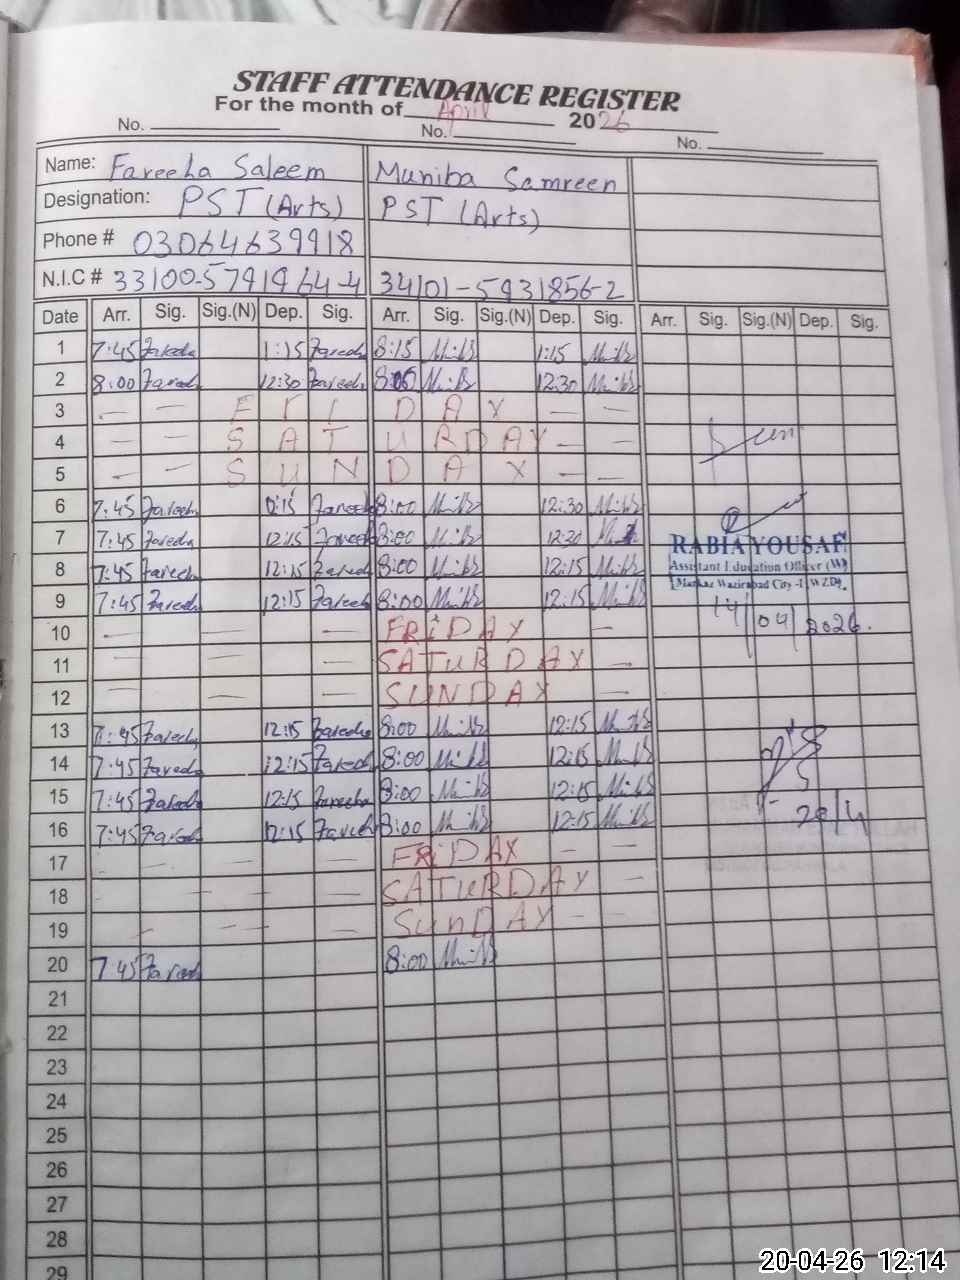 STAFF ATTENDANCE REGISTER
For the month of April 2026
No. No. No.
Name: Fareeha Saleem Muniba Samreen
Designation: PST (Arts) PST (Arts)
Phone # 03064639918
N.I.C # 33100-5791964-4 34101-5931856-2
Date Arr. Sig. Sig.(N) Dep. Sig. Arr. Sig. Sig.(N) Dep. Sig. Arr. Sig. Sig.(N) Dep. Sig.
1 7:45 Fareeha 1:15 Fareeha 8:15 1:15
2 8:00 Fareeha 12:30 Fareeha 8:05 12:30
3 — — F R I D A Y — —
4 — — S A T U R D A Y — —
5 — — S U N D A Y — —
6 7:45 Fareeha Fareeha 8:00 12:30
7 7:45 Fareeha 12:15 Fareeha 8:00
8 7:45 Fareeha 12:15 Fareeha 8:00 12:15
9 7:45 Fareeha 12:15 Fareeha 8:00 12:15
RABIA YOUSAF
Assistant Education Officer (W)
Markaz Wazirabad City-I WZD.
14/04/2026.
10 — — — FRIDAY —
11 — — — SATURDAY —
12 — — — SUNDAY —
13 Fareeha 12:15 Fareeha 8:00 12:15
14 7:45 Fareeha 12:15 Fareeha 8:00 12:15
15 7:45 Fareeha 12:15 Fareeha 8:00 12:15
16 7:45 Fareeha 12:15 Fareeha 8:00 12:15
20/4
17 — — FRIDAY — —
18 — — — SATURDAY —
19 — — — SUNDAY — —
20 7:45 Fareeha 8:00
21
22
23
24
25
26
27
28
29
20-04-26 12:14